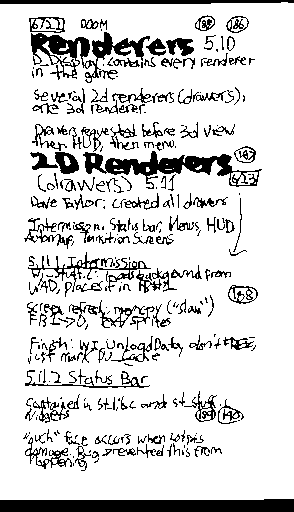 6/21 DOOM 185 186
Renderers 5.10
D_Display: contains every renderer
in the game
Several 2d renderers (drawers),
one 3d renderer.
Drawers requested before 3d view
then HUD, then menu.
2D Renderers 187
(drawers) 5.11 6/22
Dave Taylor: created all drawers
Intermission, Status bar, Menus, HUD
Automap, Transition Screens
5.11.1 Intermission
WI_stuff.c: loads background from
WAD, places it in FB#1
188
Screen refresh: memcpy ("slow")
FB 1->0, text/sprites
Finish: WI_UnloadData, don't free,
just mark PU_Cache
5.11.2 Status Bar
Contained in st_lib.c and st_stuff.c
Widgets 189 190
"ouch" face occurs when
damage. Bug prevented this from
happening